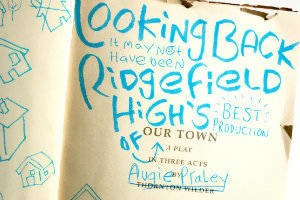 Looking BACK
It may Not
Have been
Ridgefield
HiGH'S
BEST
PRODUCTION
OF
OUR TOWN
A PLAY
IN THREE ACTS
BY
Augie Praley
THORNTON WILDER